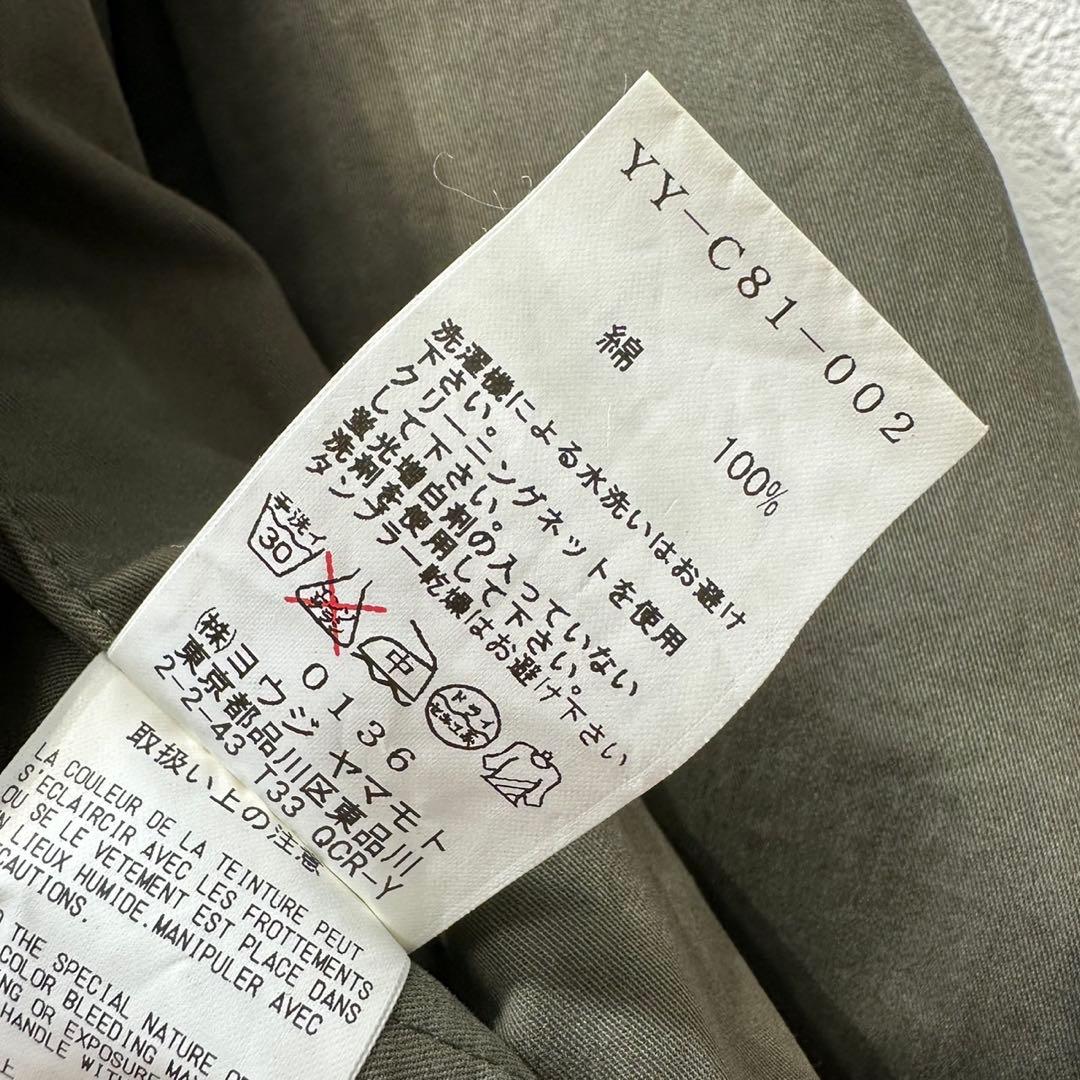 YY-C81-002
綿 100%
洗濯機による水洗いはお避け
下さい。
クリーニングネットを使用
して下さい。
蛍光増白剤の入っていない
洗剤を使用して下さい。
タンブラー乾燥はお避け下さい
手洗イ
30
エンソ
サラシ
中
ドライ
セキユ系
0136
(株)ヨウジ ヤマモト
東京都品川区東品川
2-2-43 T33 QCR-Y
取扱い上の注意
LA COULEUR DE LA TEINTURE PEUT
S'ECLAIRCIR AVEC LES FROTTEMENTS
OU SE LE VETEMENT EST PLACE DANS
LIEUX HUMIDE.MANIPULER AVEC
THE SPECIAL NATURE
COLOR BLEEDING
OR EXPOSURE
HANDLE